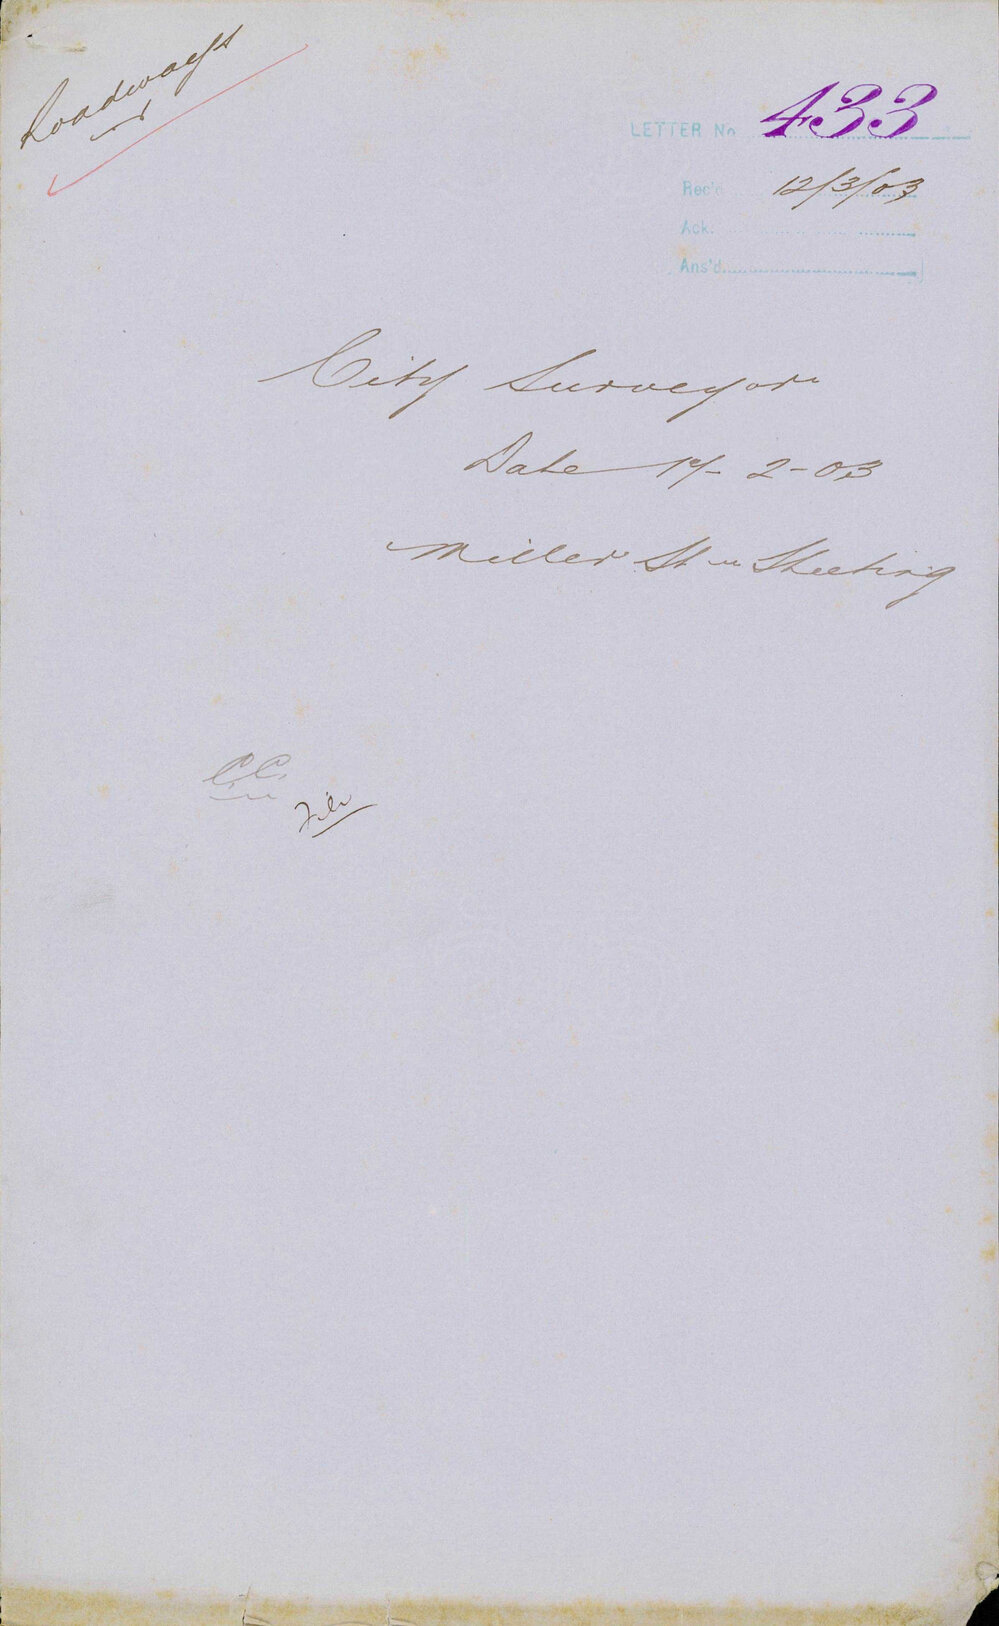 Roadways
LETTER No 433
Rec'd 12/3/03
Ack.
Ans'd
City Surveyor
Date 17-2-03
Miller St Sheeting
C.C.
File